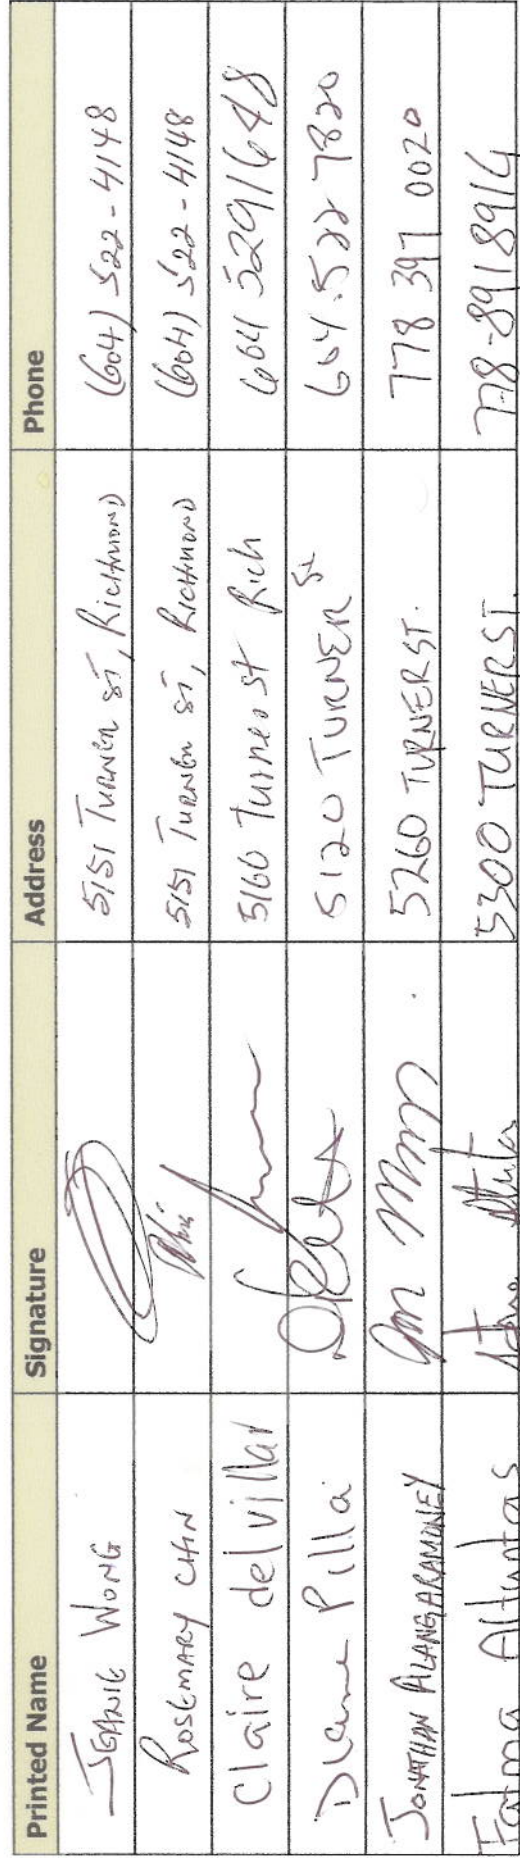 Printed Name Signature Address Phone
JEANIE WONG 5151 TURNER ST, RICHMOND (604) 522-4148
ROSEMARY CHIN 5151 TURNER ST, RICHMOND (604) 522-4148
Claire delvillar 5160 Turner st Rich 604 5291648
Diane Pilla 5120 TURNER St 604.522 7820
JONATHAN ALANGARAMONEY 5260 TURNER ST. 778 397 0020
Fatma Altuntas 5300 TURNER ST 778-8918914